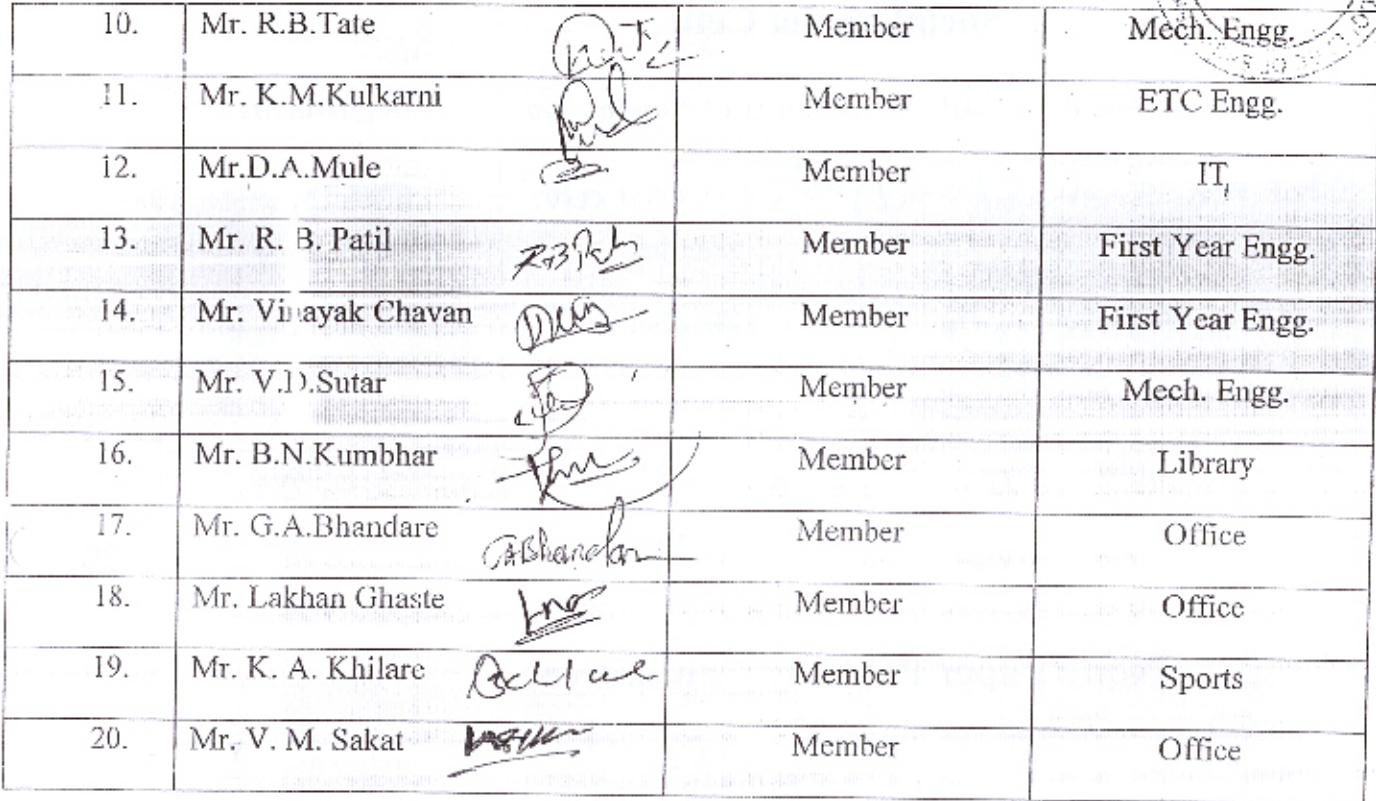 10. Mr. R.B.Tate Member Mech. Engg.
11. Mr. K.M.Kulkarni Member ETC Engg.
12. Mr.D.A.Mule Member IT
13. Mr. R. B. Patil Member First Year Engg.
14. Mr. Vinayak Chavan Member First Year Engg.
15. Mr. V.D.Sutar Member Mech. Engg.
16. Mr. B.N.Kumbhar Member Library
17. Mr. G.A.Bhandare GABhandare Member Office
18. Mr. Lakhan Ghaste Member Office
19. Mr. K. A. Khilare Member Sports
20. Mr. V. M. Sakat Member Office